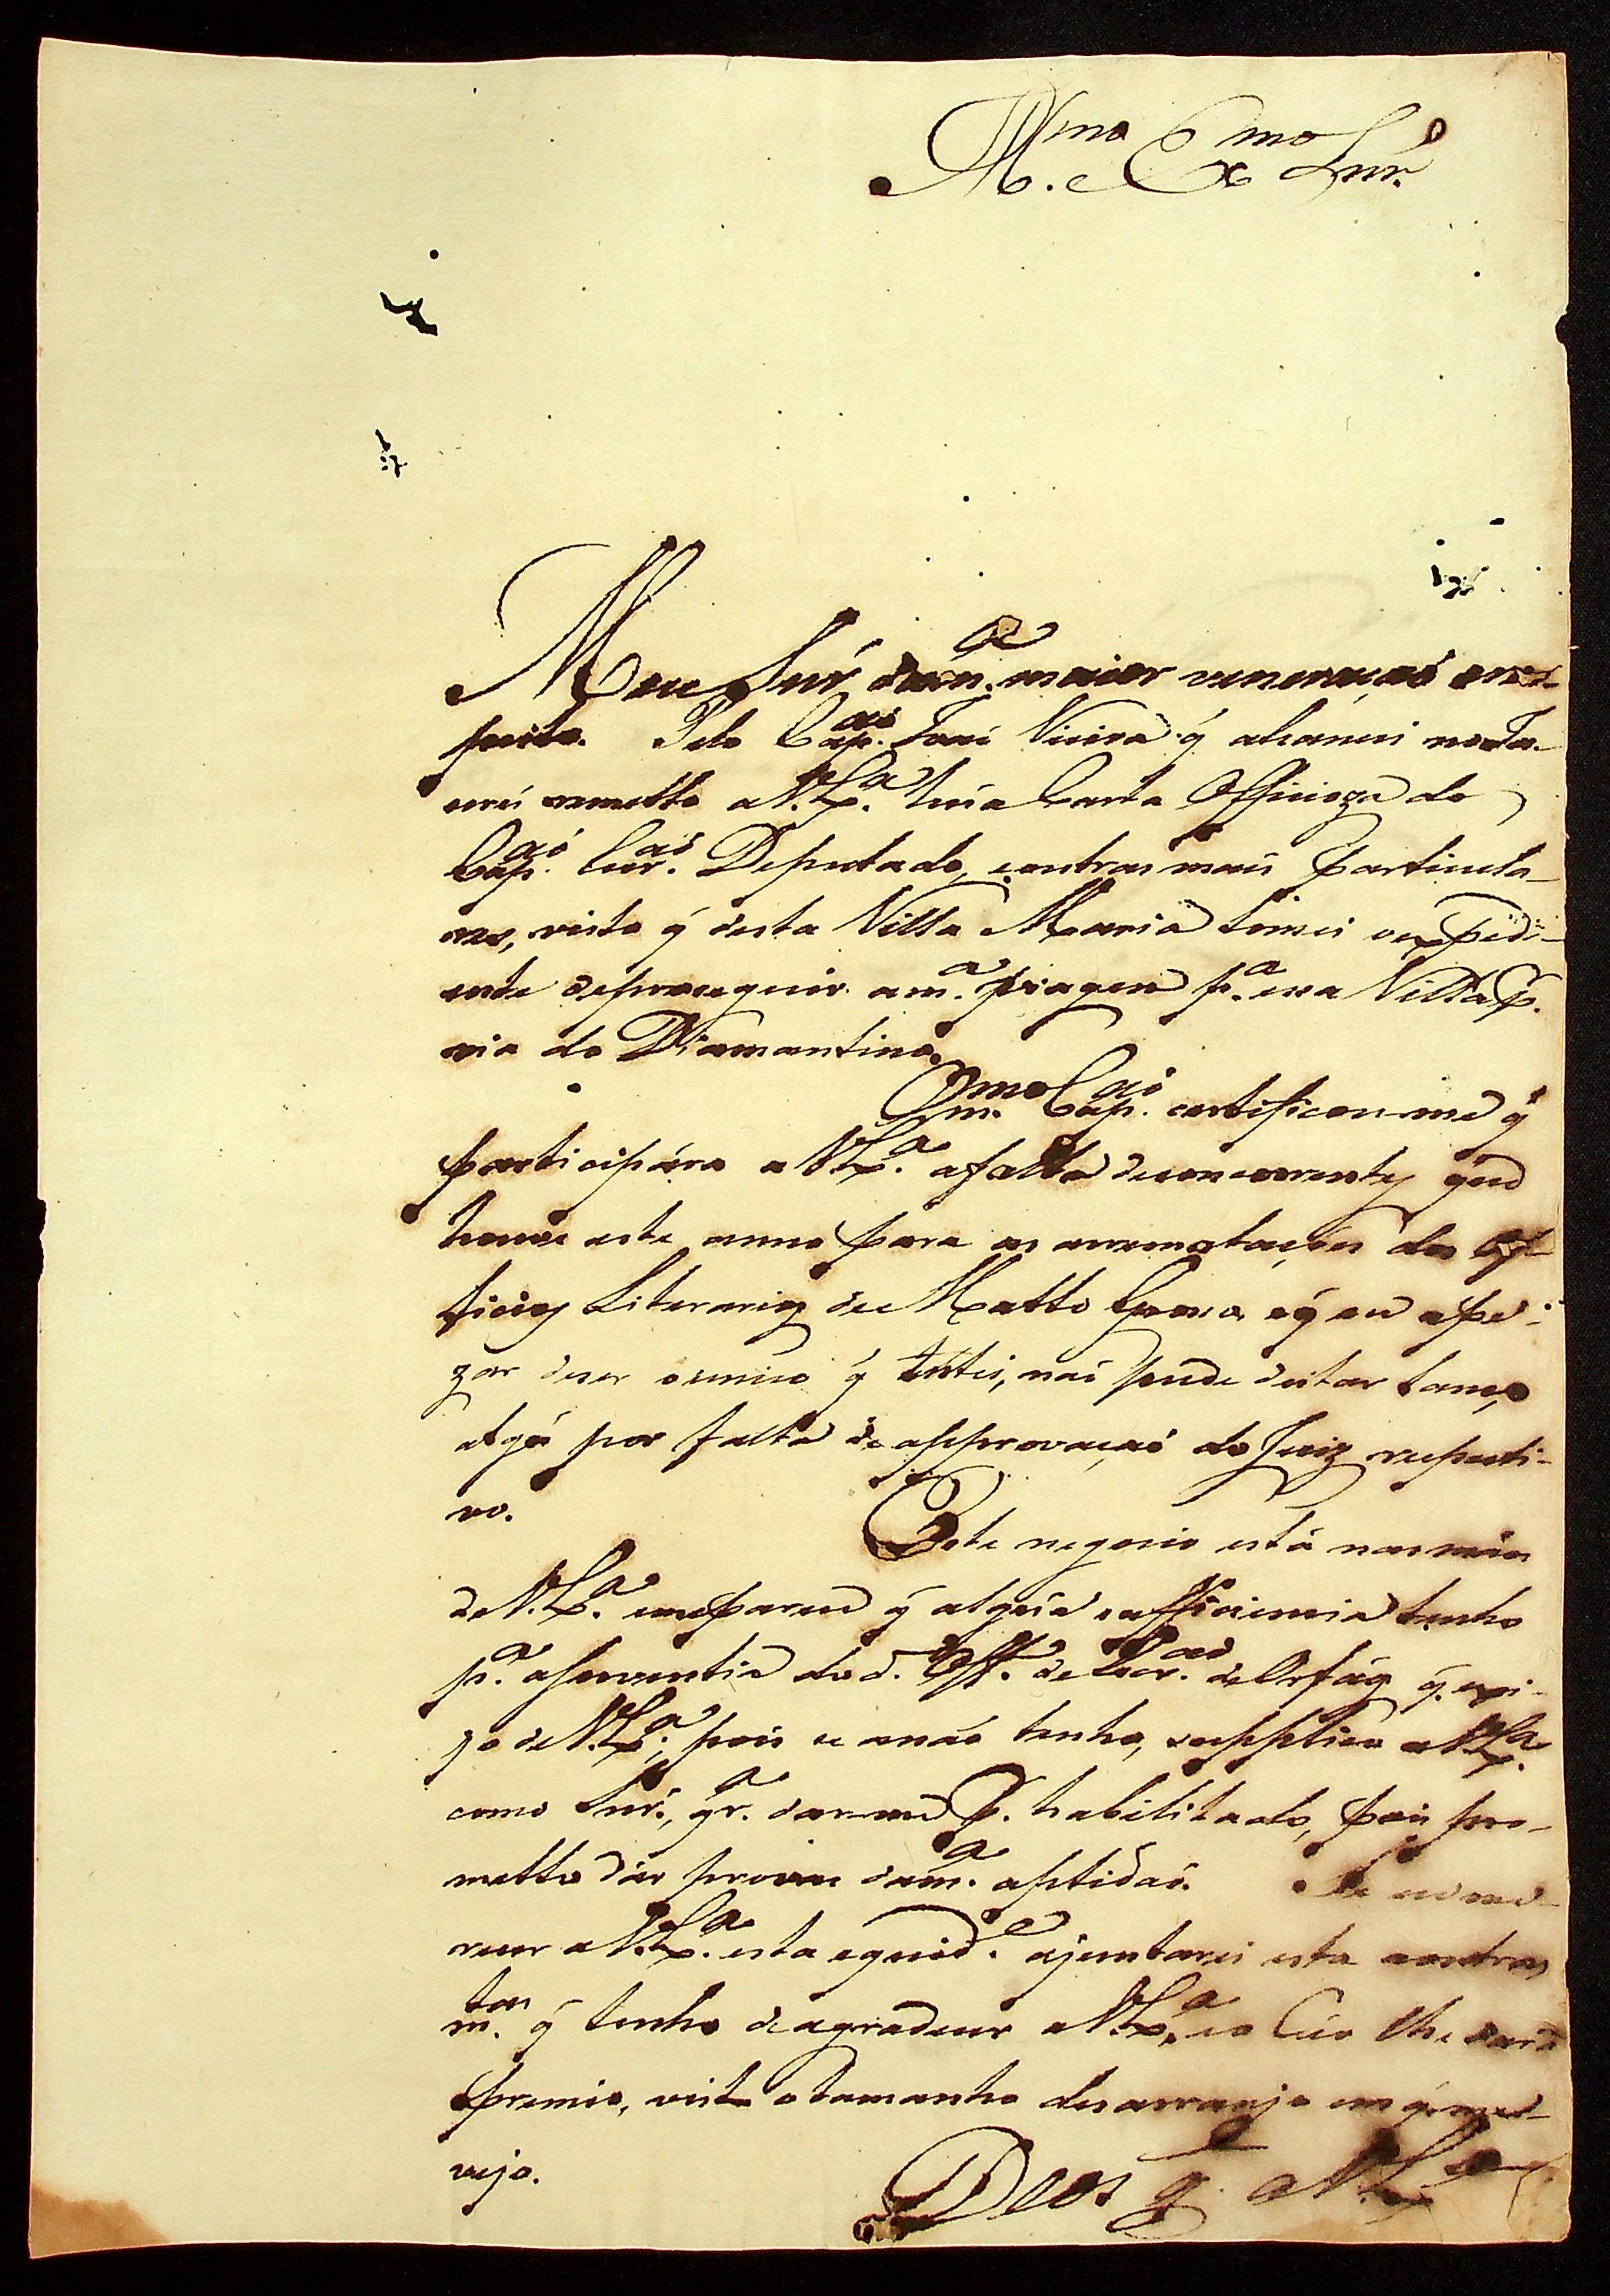 Illmo. e Exmo. Snr.
Meu Snr. da m.a maior veneração e res-
peito. Pelo Cap.am José Vieira q̃ alcancei no Ta-
remetto a V. Ex.a hũa Carta Officioza do
Cap.am Deputado, e outras mais particula-
res, visto q̃ desta Villa Maria tomei o expedi-
ente de proseguir a m.a viagem p.a essa Villa p.
via do Diamantino.
O m.mo Cap.am certificou-me q̃
participára a V. Ex.a a falta de concorrentes que
houve este anno para as arremataçoens dos Of-
ficios Literarios de Matto Groço, e q̃ eu ape-
zar de ser o unico q̃ não pude deitar lanço
algũ por falta de approvação do Juiz respecti-
vo.
Este negocio está nas mãos
de V. Ex.a e me parece q̃ algũa sufficiencia tenho
p.a a serventia do d. Off.o de Escr.am de Orfãos q̃
de V. Ex.a, pois se a não tenho, supplico a V. Ex.a
como Snr., q.r dar-me p. habilitado, pois pro-
metto dar provas da m.a aptidão. Se eu me-
recer a V. Ex.a esta equid.e ajuntarei esta a outras
m.tas q̃ tenho de agradecer a V. Ex.a, e o Ceo lhe dará
o premio, visto o tamanho desarranjo em q̃ me
vejo.
Deos g.e a V. Ex.a